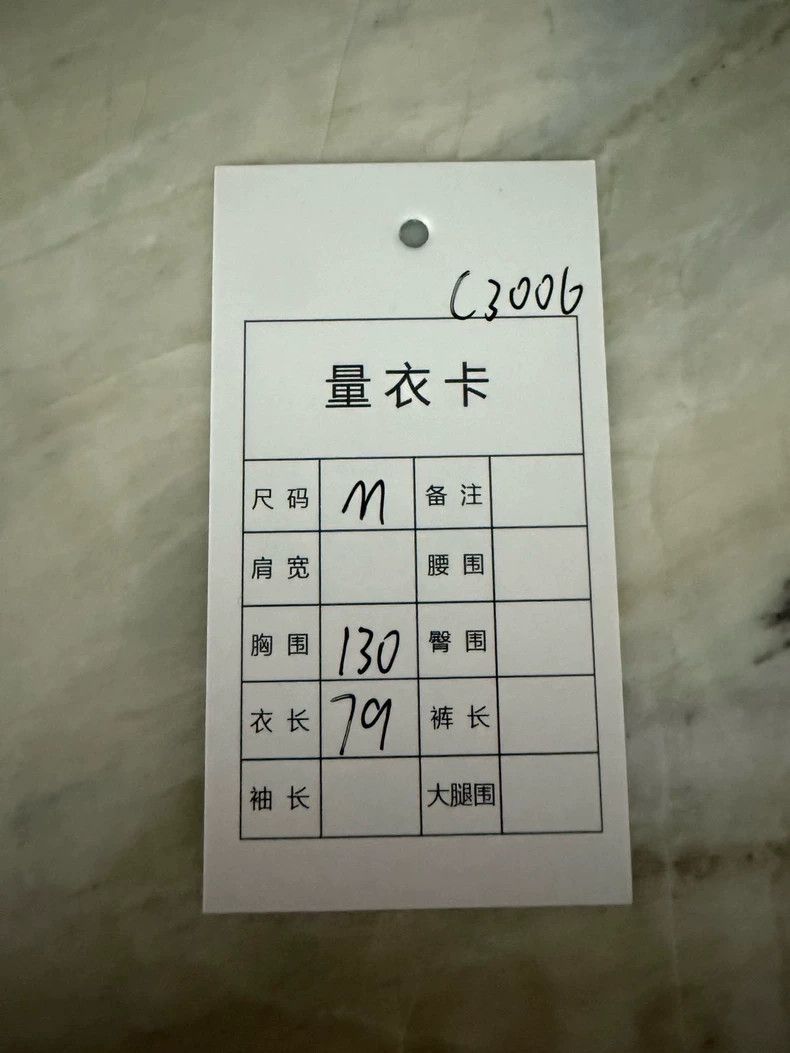 C3006
量衣卡
尺码 M 备注
肩宽 腰围
胸围 130 臀围
衣长 79 裤长
袖长 大腿围